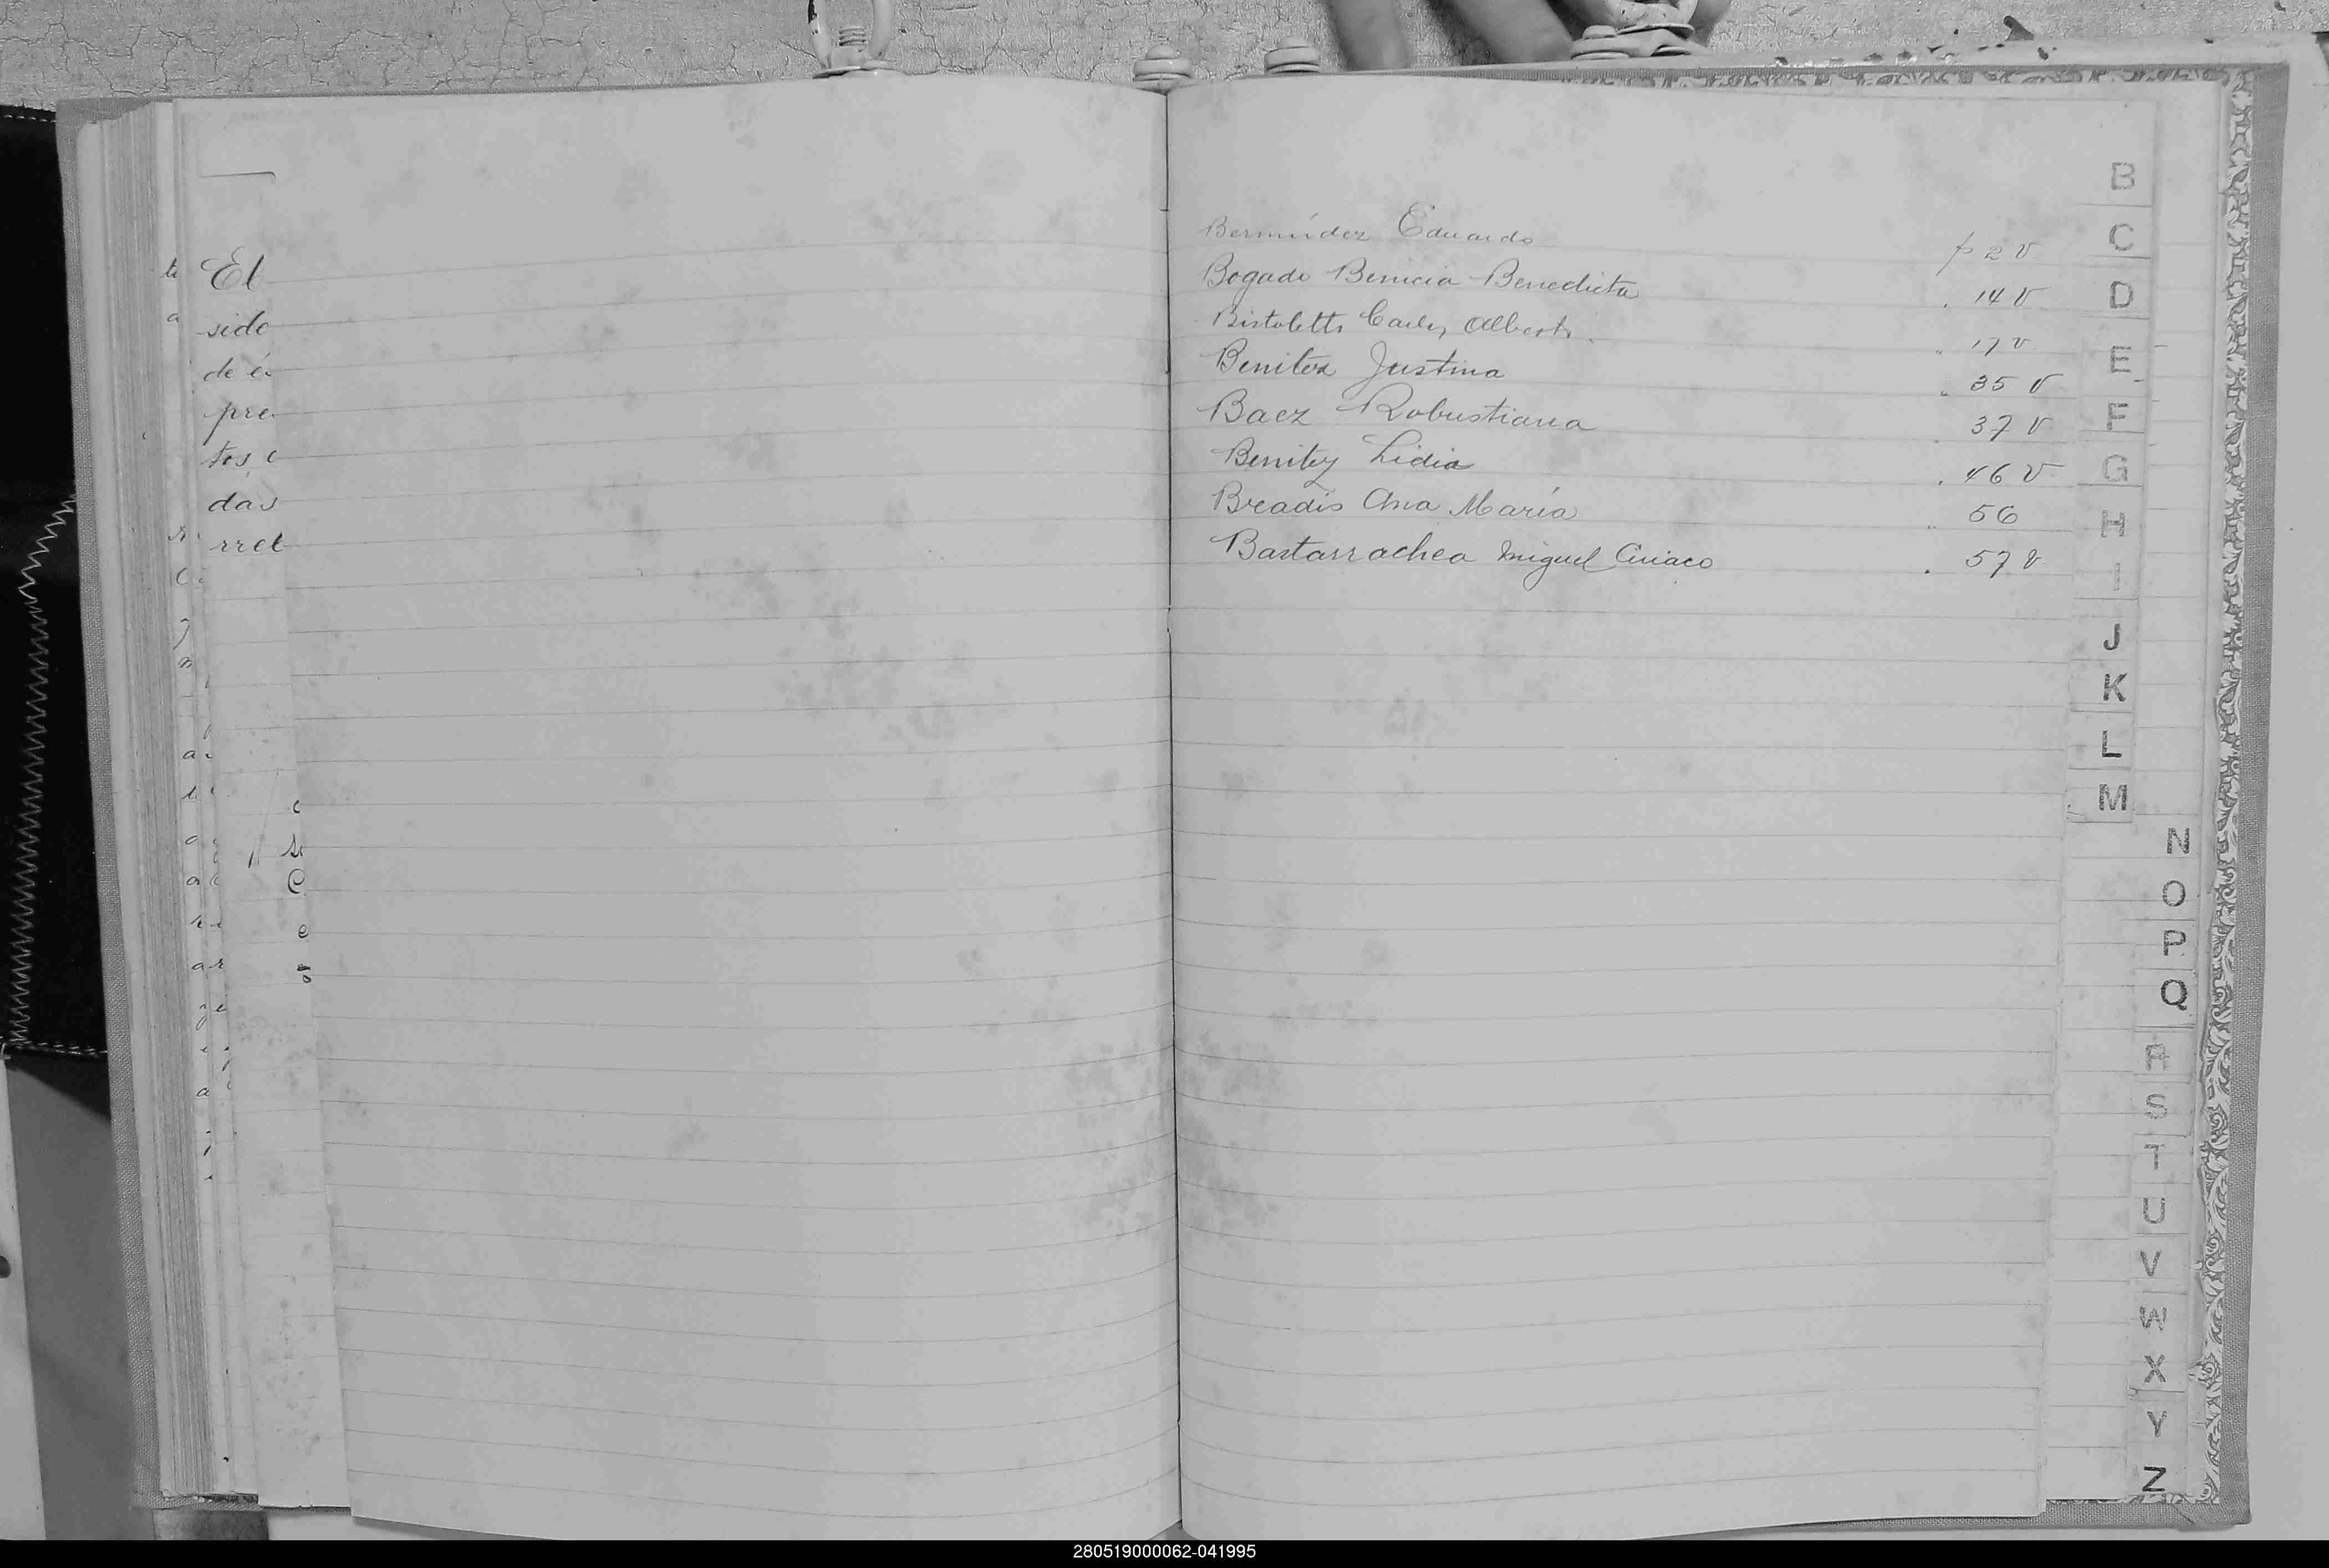 El
side
de é
pre
tos
das
rret
Bermúdez Eduardo fo 2 v
Bogado Benicia Benedicta " 14 v
Bistoletti Carlos Alberto " 17 v
Benitez Justina " 35 v
Baez Robustiana " 37 v
Benitez Lidia " 46 v
Breadis Ana María " 56
Bastarrachea Miguel Ciriaco " 57 v
B
C
D
E
F
G
H
I
J
K
L
M
N
O
P
Q
R
S
T
U
V
W
X
Y
Z
280519000062-041995